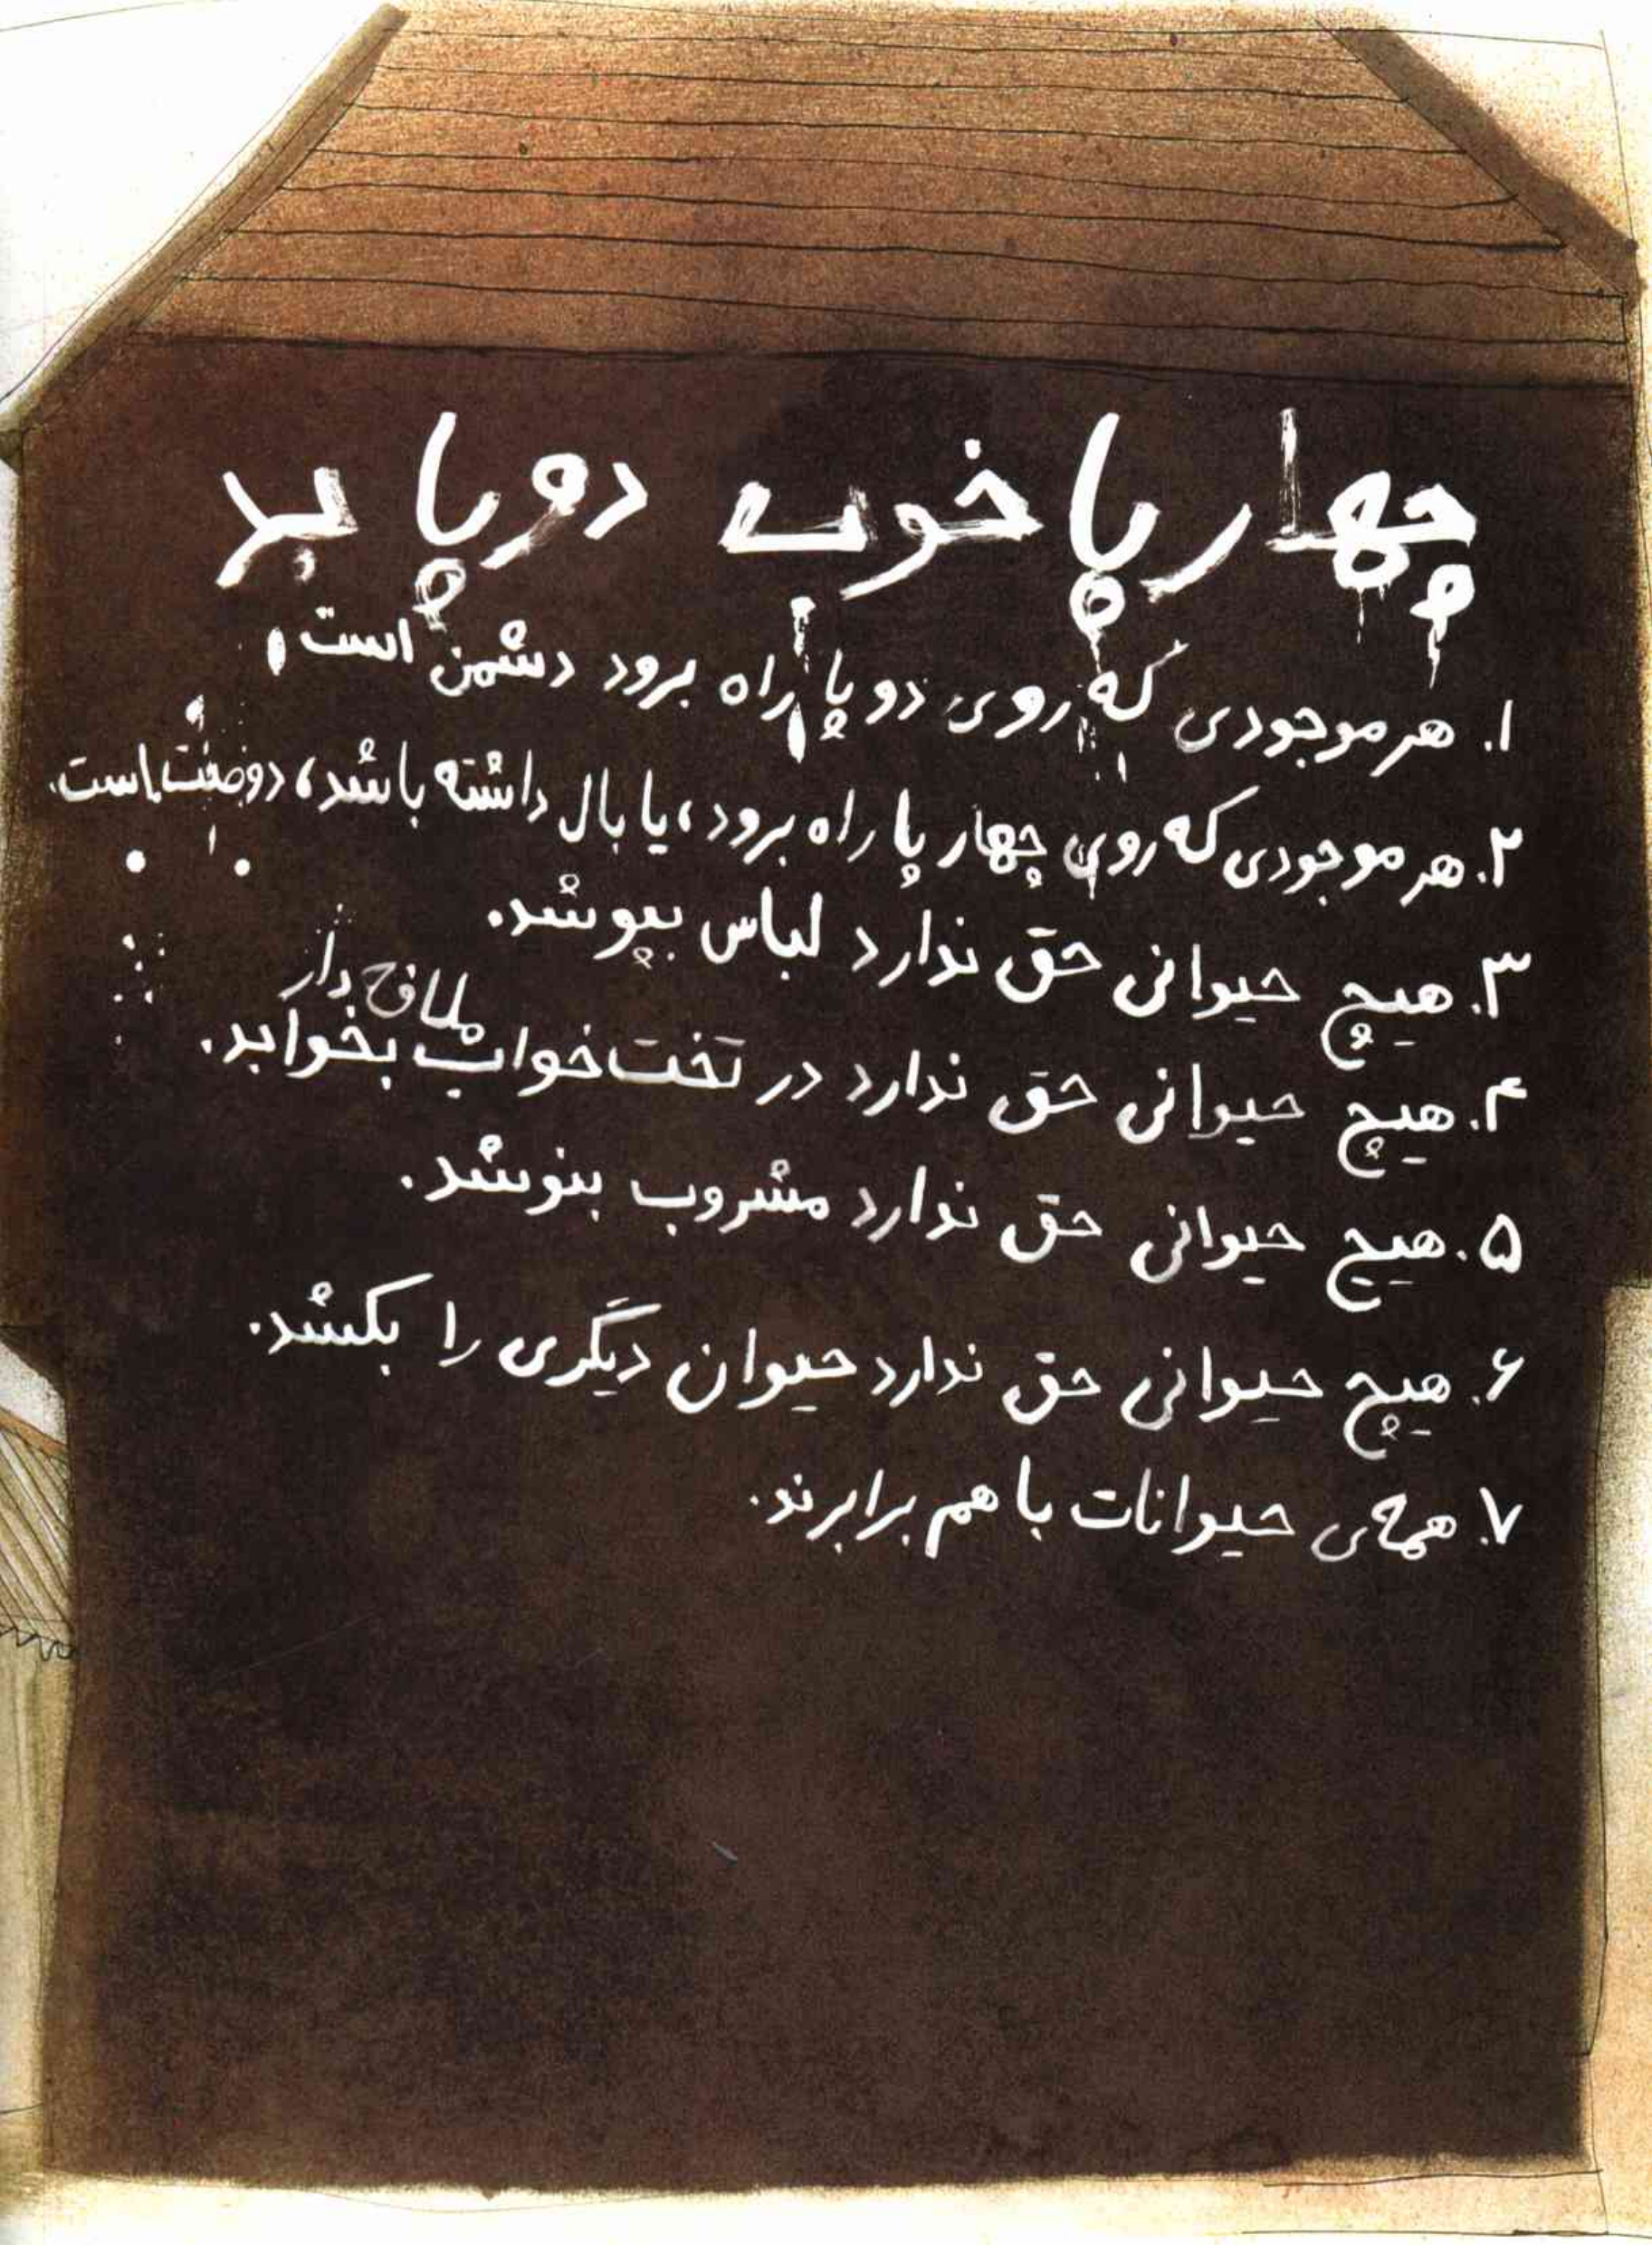 چهارپا خوب دوپا بد
۱. هر موجودی که روی دو پا راه برود دشمن است
۲. هر موجودی که روی چهار پا راه برود، یا بال داشته باشد، دوصت است.
۳. هیچ حیوانی حق ندارد لباس بپوشد.
ملافه دار
۴. هیچ حیوانی حق ندارد در تخت خواب بخوابد.
۵. هیچ حیوانی حق ندارد مشروب بنوشد.
۶. هیچ حیوانی حق ندارد حیوان دیگری را بکشد.
۷. همه‌ی حیوانات با هم برابرند.